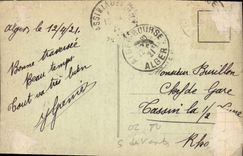 Alger, le 12/9/21.
Bonne traversée
Beau temps
Tout va très bien
BOURSE
ALGER
Monsieur Bouillon
Chef de Gare
Tassin la 1/2 Lune
Rhô